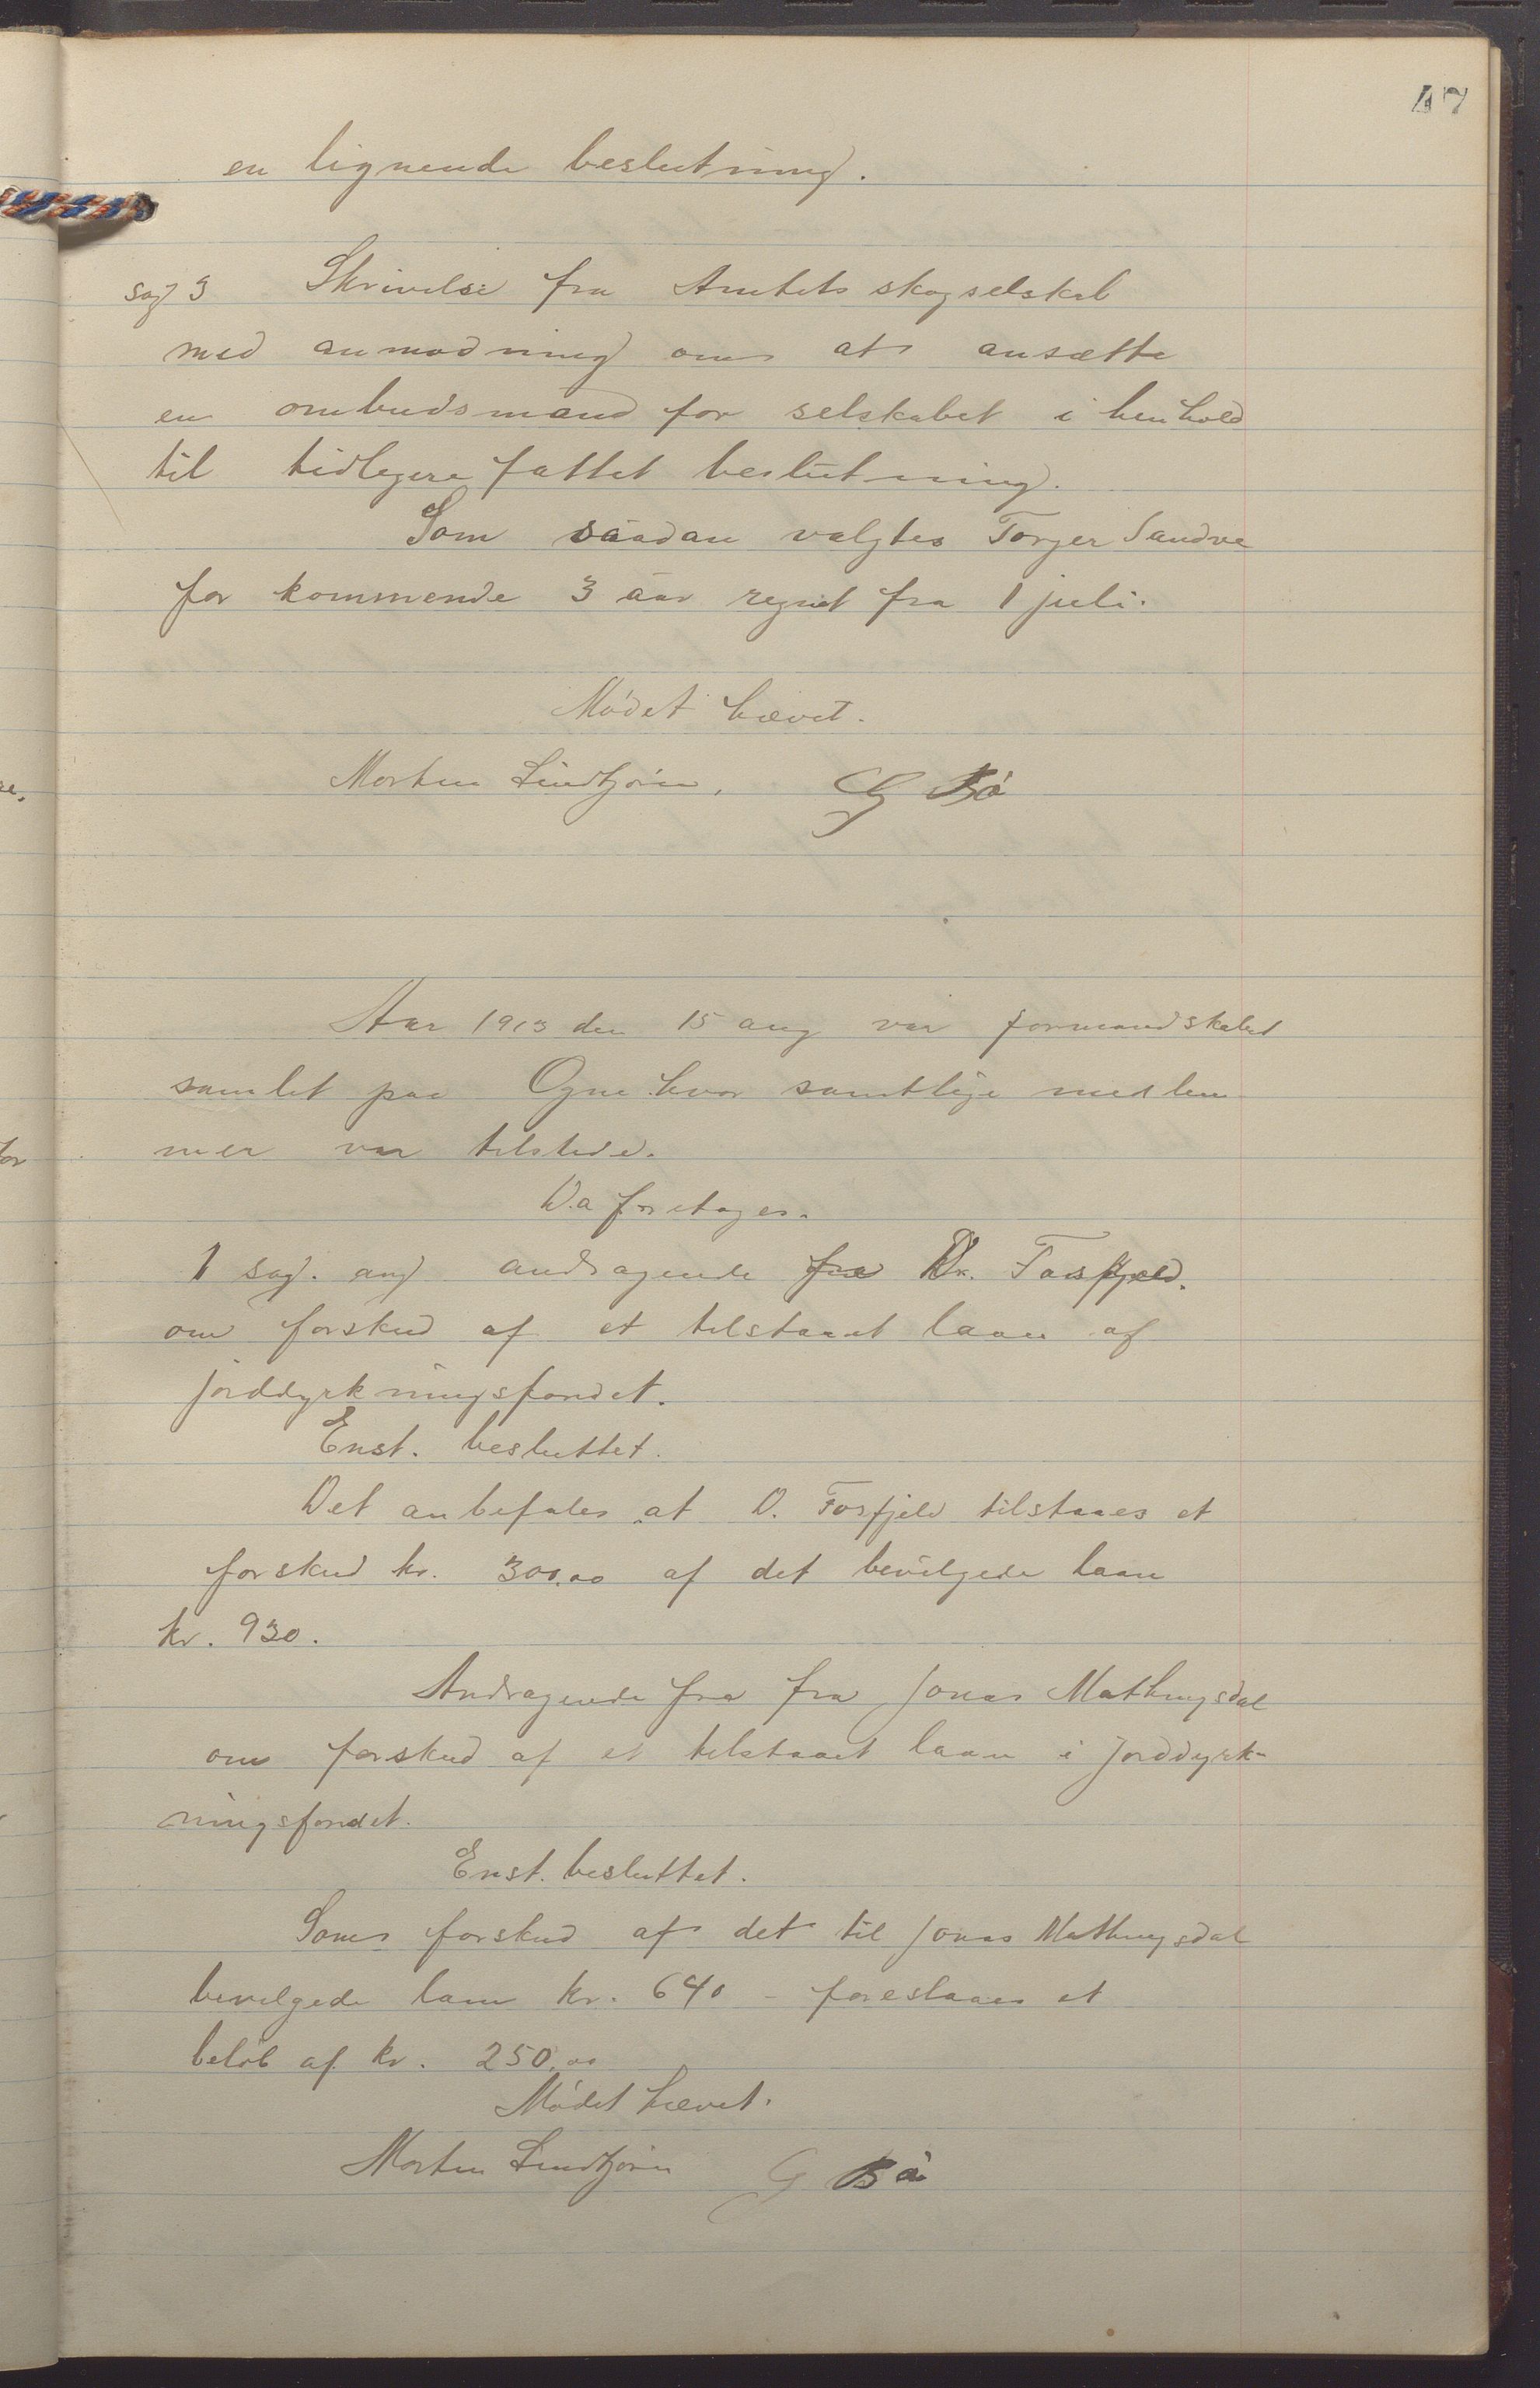 47
en lignende beslutning.
sag 3 Skrivelse fra Amtets skogselskab
med anmodning om at ansætte
en ombudsmand for selskabet i henhold
til tidlegere fattet beslutning.
Som saadan valgtes Torger Sandve
for kommende 3 aar regnet fra 1 juli.
Mødet hævet.
Morten Lindtjørn. G Bø
Aar 1913 den 15 aug var formandskabet
samlet paa Ogne hvor samtlige medlem
mer var tilstede.
Da foretages.
1 sag. ang andragende fra D. Fosfjeld.
om forskud af et tilstaaet laan af
jorddyrkningsfondet.
Enst. besluttet.
Det anbefales at D. Fosfjeld tilstaaes et
forskud kr. 300,00 af det bevilgede laan
kr. 930.
Andragende fra fra Jonas Mathingsdal
om forskud af et tilstaaet laan i Jorddyrk-
ningsfondet.
Enst. besluttet.
Som forskud af det til Jonas Mathingsdal
bevilgede laan kr. 640 - foreslaaes et
beløb af kr. 250,00
Mødet hævet.
Morten Lindtjørn G Bø